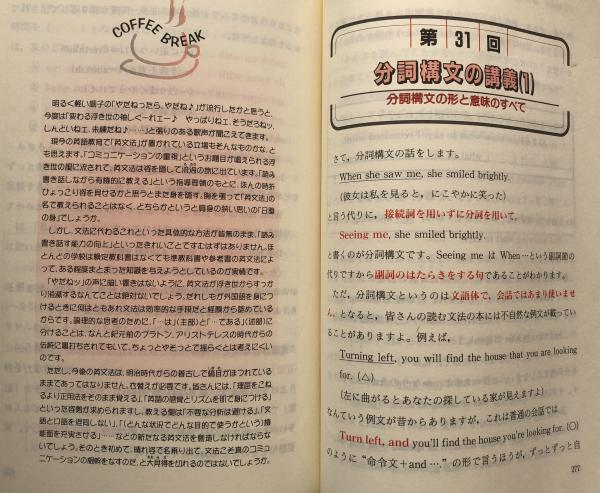 COFFEE BREAK
明るく軽い調子の「やだねったら、やだね♪」が流行したかと思うと、
今度は「変わる浮き世の袖しぐーれェー♪　やっぱりねエ、そうだろねッ、
しんどいねエ、未練だね♪……」と張りのある歌声が聞こえてきます。
現今の英語教育で「英文法」が置かれている立場もそんなものかな、と
も思えます。「コミュニケーションの重視」というお題目が進えられる浮き
世の風に流されて、英文法は姿を隠して流浪の旅に出ています。「読み
書き話しながら有機的に教える」という指導要領のもとに、ほんの時折
ひょっこり姿を見せるかと思うとまた身を隠す。胸を張って「英文法」の
名で教えられることはなく、どちらかというと肩身の狭い思いの「日陰
の身」でしょうか。
しかし、文法に代わるこれといった具体的な方法が皆無のまま、「読み
書き話す能力の向上」といったきれいごとですむはずはありません。ほ
とんどの学校は検定教科書はなくても準教科書や参考書の英文法によ
って、ある程度まとまった知識を与えようとしているのが実情です。
「やだねッ」の声に追い書きはしないように、英文法が浮き世からすっか
り消滅するなんてことは絶対ないでしょう。だれしもが外国語を身につ
けるときに何はともあれ文法は効率的な手段だと経験から認めている
からです。論理的な思考のために、「…は」（主部）と「…である」（述部）に
分けることは、なんと紀元前のプラトン、アリストテレスの時代からの
伝統に裏打ちされてもいて、ちょっとやそっとで揺らぐとは考えにくい
のです。
ただし、今後の英文法は、明治時代からの着古して綿目がほつれている
ままであってはなりません。衣替えが必要です。皆さんには、「理屈をこね
るより正用法をそのまま覚える」、「英語の感覚とリズムを肌で身につける」
といった姿勢が求められますし、教える側は「不毛な分析は避ける」、「文
語と口語を混同しない」、「（どんな状況でどんな目的で使うかという）機
能面を充実させる」……などの新たなる英文法を創造しなければならな
いでしょう。そのとき初めて、晴れ姿で名乗り出て、文法こそ真のコミュ
ニケーションの根幹をなすのだ、と大見得を切れるのではないでしょうか。
第31回
分詞構文の講義(1)
分詞構文の形と意味のすべて
さて、分詞構文の話をします。
When she saw me, she smiled brightly.
(彼女は私を見ると、にこやかに笑った)
と言う代りに、接続詞を用いずに分詞を用いて、
Seeing me, she smiled brightly.
と書くのが分詞構文です。Seeing me は When…という副詞節の
代りですから副詞のはたらきをする句であることがわかります。
ただ、分詞構文というのは文語体で、会話ではあまり使いませ
ん。となると、皆さんの読む文法の本には不自然な例文が載ってい
ることがありますよ。例えば、
Turning left, you will find the house that you are looking
for. (△)
(左に曲がるとあなたの探している家が見えますよ)
なんていう例文が昔からありますが、これは普通の会話では
Turn left, and you'll find the house you're looking for. (○)
のように “命令文+and ….” の形で言うほうが、ずっとずっと自
277